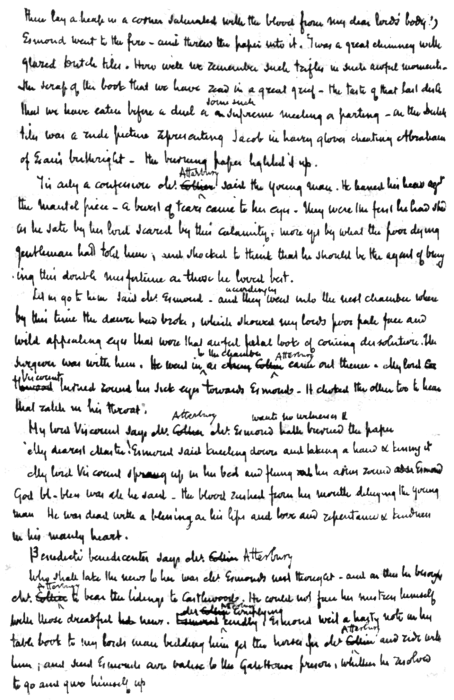 There lay a heap in a corner saturated with the blood from my dear lord's body!)
Esmond went to the fire - and threw the paper into it. 'Twas a great chimney with
glazed Dutch tiles. How well we remember such trifles in such awful moments -
the scrap of the book that we have read in a great grief - the taste of that last dish
some such
that we have eaten before a duel or supreme meeting or parting - on the Dutch
tiles was a rude picture representing Jacob in hairy gloves cheating
of Esau's birthright - The burning paper lighted it up.
Atterbury
'Tis only a confession Mr. Collier said the young man. He leaned his head agst
the mantel piece - a burst of tears came to his eyes. They were the first he had shed
as he sate by his lord scared by this calamity; more yet by what the poor dying
gentleman had told him, and shocked to think that he should be the agent of bring
ing this double misfortune on those he loved best.
accordingly
Let us go to him said Mr. Esmond - and they went into the next chamber where
by this time the dawn had broke, which showed my lord's poor pale face and
wild appealing eyes that wore that awful fatal look of coming dissolution. The
to the chamber Atterbury
surgeon was with him. He went in as Collier came out thence. My lord
Viscount
turned round his sick eyes towards Esmond - It choked the other too to hear
that rattle in his throat.
Atterbury wants no witnesses &
My lord Viscount says Mr. Collier Mr. Esmond hath burned the paper
My dearest Master! Esmond said kneeling down and taking a hand & kissing it
My lord Viscount sprang up in his bed and flung his arms round Esmond
God bl-bless was all he said - the blood rushed from his mouth deluging the young
man He was dead with a blessing on his lips and love and repentance & kindness
in his manly heart.
Benedicti benedicentes says Mr. Collier Atterbury
Who shall take the news to her was Mr Esmond's next thought - and on this he besought
Atterbury
Mr. Collier to bear the tidings to Castlewood. He could not face his mistress himself
Mr. Atterbury complying
with those dreadful news. kindly, Esmond writ a hasty note in his
Atterbury
table book to my lord's man bidding him get the horses for Mr Collier and ride with
him; and send Esmond's own valise to the Gatehouse prison, whither he resolved
to go and give himself up